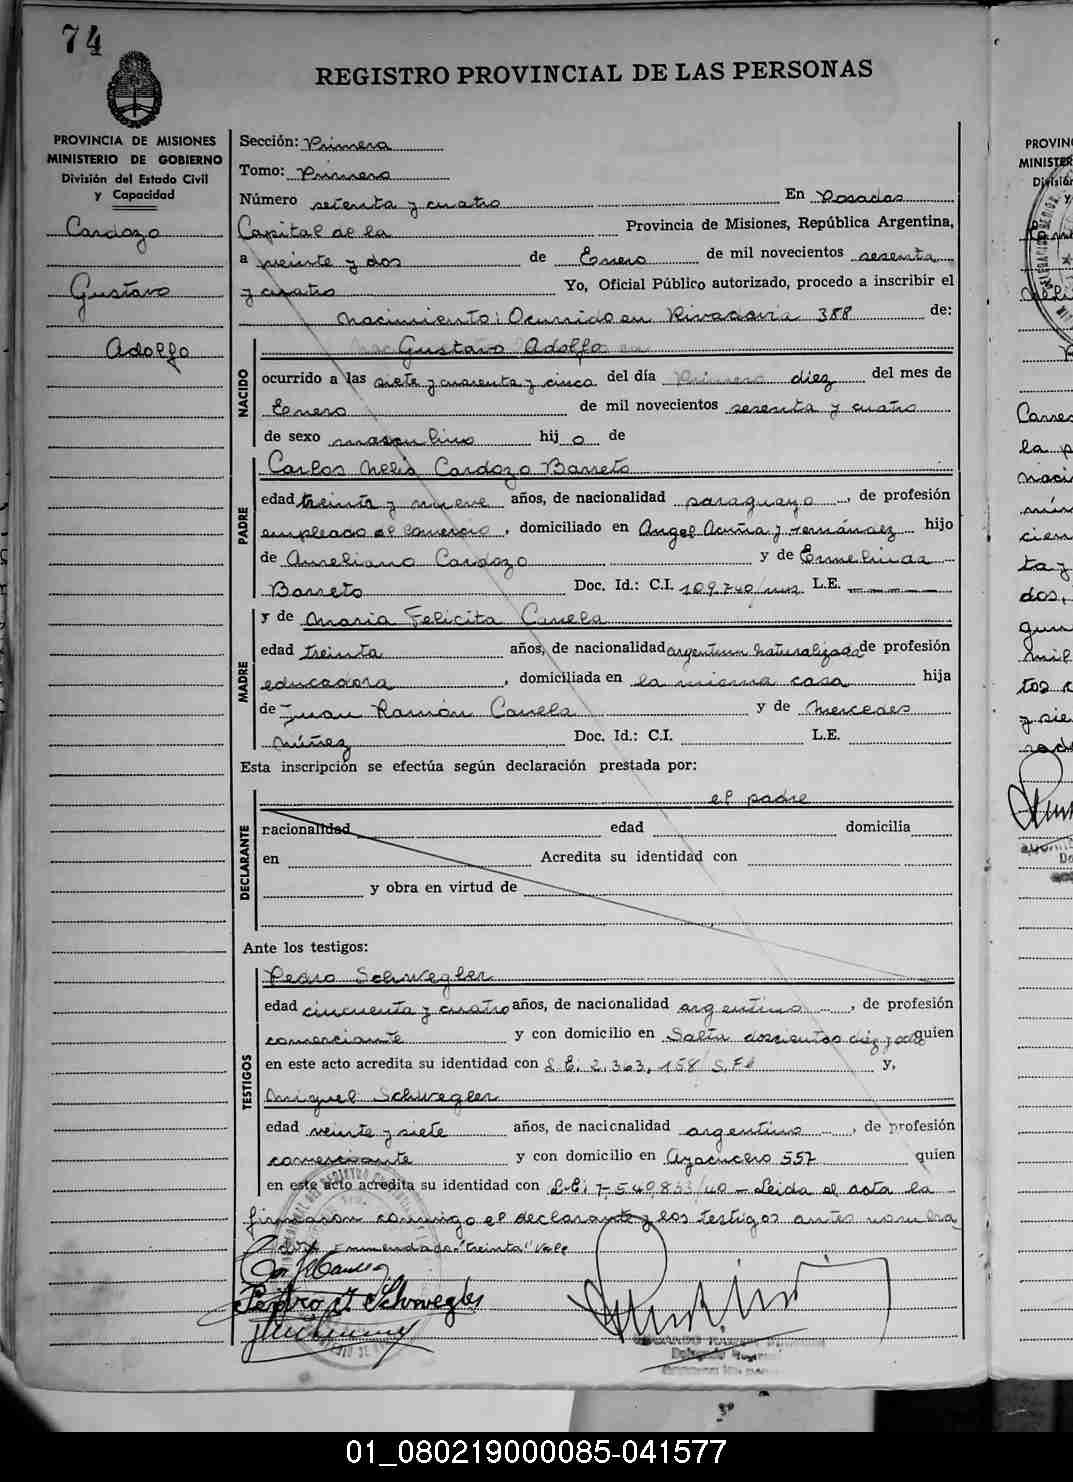 74
REGISTRO PROVINCIAL DE LAS PERSONAS
PROVINCIA DE MISIONES
MINISTERIO DE GOBIERNO
División del Estado Civil
y Capacidad
Cardozo
Gustavo
Adolfo
Sección: Primera
Tomo: Primero
Número setenta y cuatro En Posadas
Capital de la Provincia de Misiones, República Argentina,
a veinte y dos de Enero de mil novecientos sesenta
y cuatro Yo, Oficial Público autorizado, procedo a inscribir el
nacimiento: Ocurrido en Rivadavia 388 de:
NACIDO
Gustavo Adolfo
ocurrido a las siete y cuarenta y cinco del día Primero diez del mes de
Enero de mil novecientos sesenta y cuatro
de sexo masculino hijo de
PADRE
Carlos Nelis Cardozo Barreto
edad treinta y nueve años, de nacionalidad paraguayo, de profesión
empleado de Comercio, domiciliado en Angel Acuña y Fernández hijo
de Aureliano Cardozo y de Ermelinda
Barreto Doc. Id.: C.I. 109.740/mns L.E.
MADRE
y de Maria Felicita Canela
edad treinta años, de nacionalidad argentina naturalizada de profesión
educadora, domiciliada en la misma casa hija
de Juan Ramón Canela y de Mercedes
Núñez Doc. Id.: C.I. L.E.
Esta inscripción se efectúa según declaración prestada por:
DECLARANTE
el padre
nacionalidad edad domicilia
en Acredita su identidad con
y obra en virtud de
Ante los testigos:
TESTIGOS
Pedro Schwegler
edad cincuenta y cuatro años, de nacionalidad argentino, de profesión
comerciante y con domicilio en Salta doscientos diez y ocho quien
en este acto acredita su identidad con L.E. 2.363.158/S.Fé y,
Miguel Schwegler
edad veinte y siete años, de nacionalidad argentino, de profesión
comerciante y con domicilio en Ayacucho 557 quien
en este acto acredita su identidad con L.E: 7.540.833/40 - Leida el acta la
firmaron conmigo el declarante y los testigos antes nombra
dos. Enmendado: "treinta" Vale
Pedro J Schwegler
PROVIN
MINISTER
División
y
01_080219000085-041577